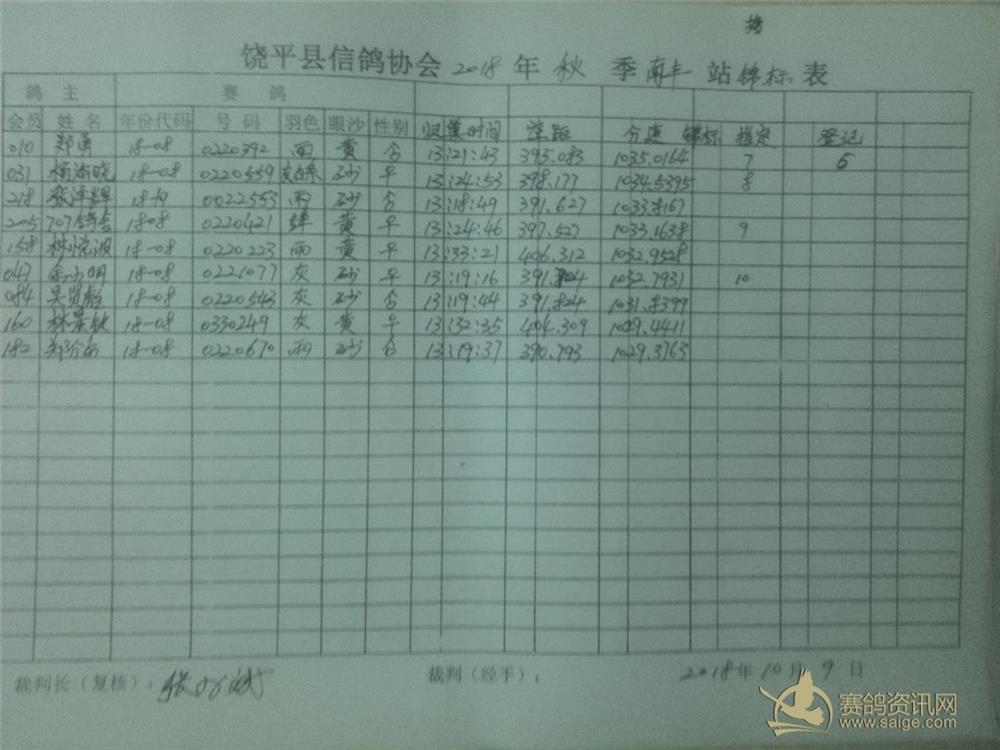 饶平县信鸽协会 2018 年 秋 季 南丰 站 锦标 表
鸽 主 赛 鸽
会员 姓名 年份代码 号码 羽色 眼沙 性别 归巢时间 空距 分速 锦标 指定 登记
010 郑勇 18-08 0220392 雨 黄 13:21:43 395.083 1035.0164 7 6
031 18-08 0220559 13:24:53 398.177 1034.5395 8
218 张泽辉 0022553 雨 砂 13:18:49 391.627 1033.8167
205 18-08 0220421 绛 黄 13:24:46 397.527 1033.1638 9
158 18-08 0220223 雨 黄 13:33:21 406.312 1032.9528
047 18-08 0221077 灰 砂 13:19:16 1032.7931 10
084 18-08 0220543 灰 砂 13:19:44 391.824 1031.8399
160 18-08 0330249 灰 黄 13:32:35 404.309 1029.4411
182 18-08 0220670 雨 砂 13:19:37 390.793 1029.3763
裁判长（复核）： 裁判（经手）： 2018年10月9日
赛鸽资讯网
www.saige.com